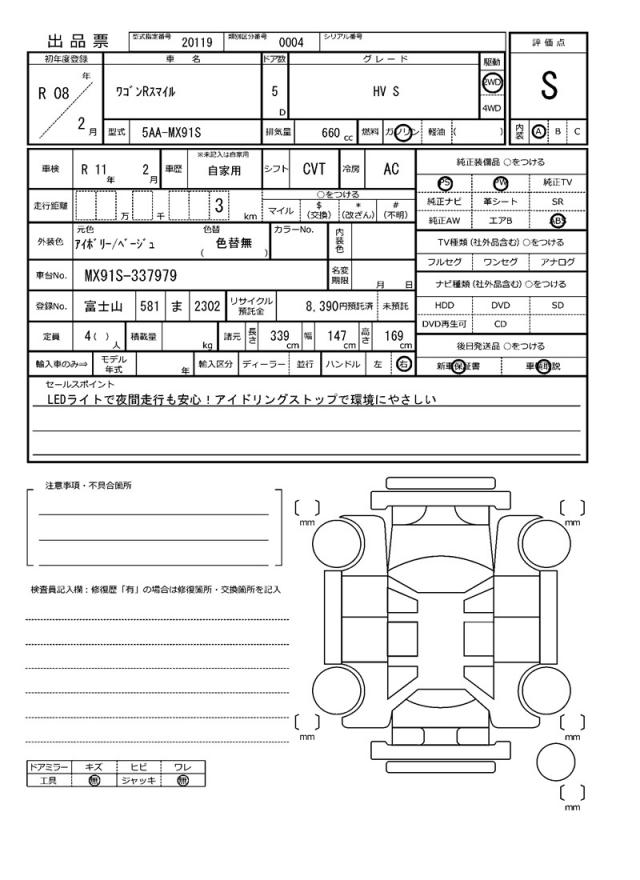 出品票 型式指定番号 20119 類別区分番号 0004 シリアル番号
初年度登録 車名 ドア数 グレード 駆動 評価点
R 08 年 2 月 ワゴンRスマイル 5 D HV S 2WD 4WD S
型式 5AA-MX91S 排気量 660 cc 燃料 ガソリン 軽油 ( ) 内装 A B C
車検 R 11 年 2 月 車歴 ※未記入は自家用 自家用 シフト CVT 冷房 AC 純正装備品 ○をつける
PS PW 純正TV
走行距離 万 千 3 km ○をつける 純正ナビ 革シート SR
マイル $ (交換) * (改ざん) # (不明) 純正AW エアB ABS
外装色 元色 アイボリー/ベージュ 色替 色替無 ( ) カラーNo. 内装色 TV種類 (社外品含む) ○をつける
フルセグ ワンセグ アナログ
車台No. MX91S-337979 名変期限 月 日 ナビ種類 (社外品含む) ○をつける
登録No. 富士山 581 ま 2302 リサイクル預託金 8,390 円預託済 未預託 HDD DVD SD
DVD再生可 CD
定員 4 ( ) 人 積載量 kg 諸元 長さ 339 cm 幅 147 cm 高さ 169 cm 後日発送品 ○をつける
輸入車のみ⇒ モデル年式 年 輸入区分 ディーラー 並行 ハンドル 左 右 新車保証書 車輌取説
セールスポイント
LEDライトで夜間走行も安心！アイドリングストップで環境にやさしい
注意事項・不具合箇所
mm mm
検査員記入欄：修復歴「有」の場合は修復箇所・交換箇所を記入
mm mm
ドアミラー キズ ヒビ ワレ
工具 無 ジャッキ 無
mm